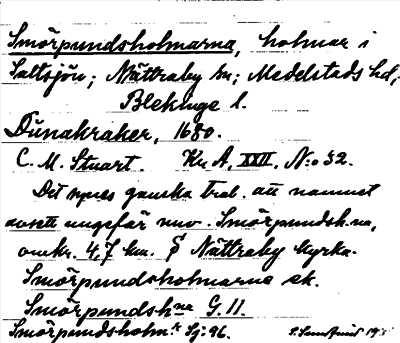 Smörpundsholmarna, holmar i
Saltsjön; Nättraby sn; Medelstads hd,
Blekinge l.
Dunakraker, 1680.
C. M. Stuart. Kr. A, XXII, N:o 32.
Det synes ganska trol. att namnet
avsett ungefär nuv. Smörpundsh.na,
omkr. 4,7 km. S Nättraby kyrka.
Smörpundsholmarne ek.
Smörpundsh.na G. 11.
Smörpundsholm.r Sj: 96.